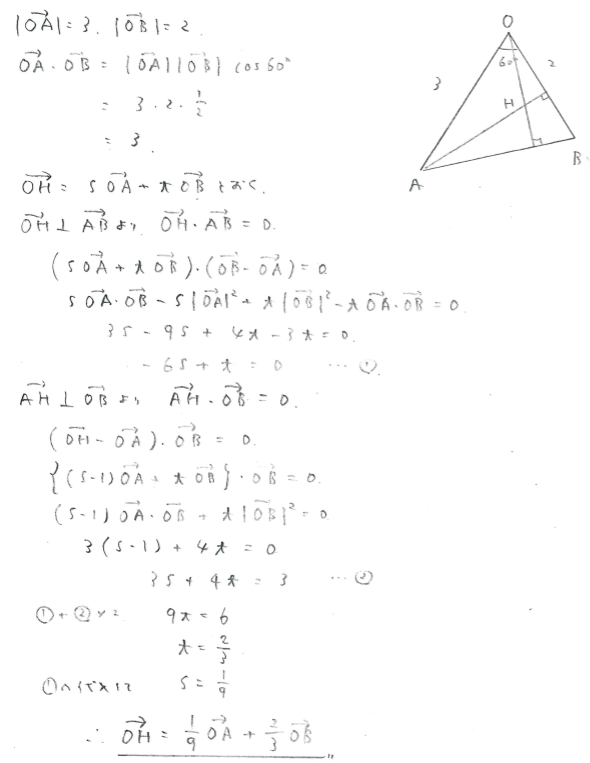 |OA→|=3, |OB→|=2.
OA→・OB→ = |OA→||OB→| cos60°
= 3・2・1/2
= 3.
OH→ = sOA→ + tOB→ とおく.
OH→⊥AB→より OH→・AB→ = 0.
(sOA→ + tOB→)・(OB→ - OA→) = 0
sOA→・OB→ - s|OA→|² + t|OB→|² - tOA→・OB→ = 0.
3s - 9s + 4t - 3t = 0.
-6s + t = 0 …①
AH→⊥OB→より AH→・OB→ = 0.
(OH→ - OA→)・OB→ = 0.
{(s-1)OA→ + tOB→}・OB→ = 0.
(s-1)OA→・OB→ + t|OB→|² = 0
3(s-1) + 4t = 0
3s + 4t = 3 …②
①+②×2 9t = 6
t = 2/3
①へ代入して s = 1/9
∴ OH→ = 1/9 OA→ + 2/3 OB→ 〃
O
60°
3
2
H
A
B